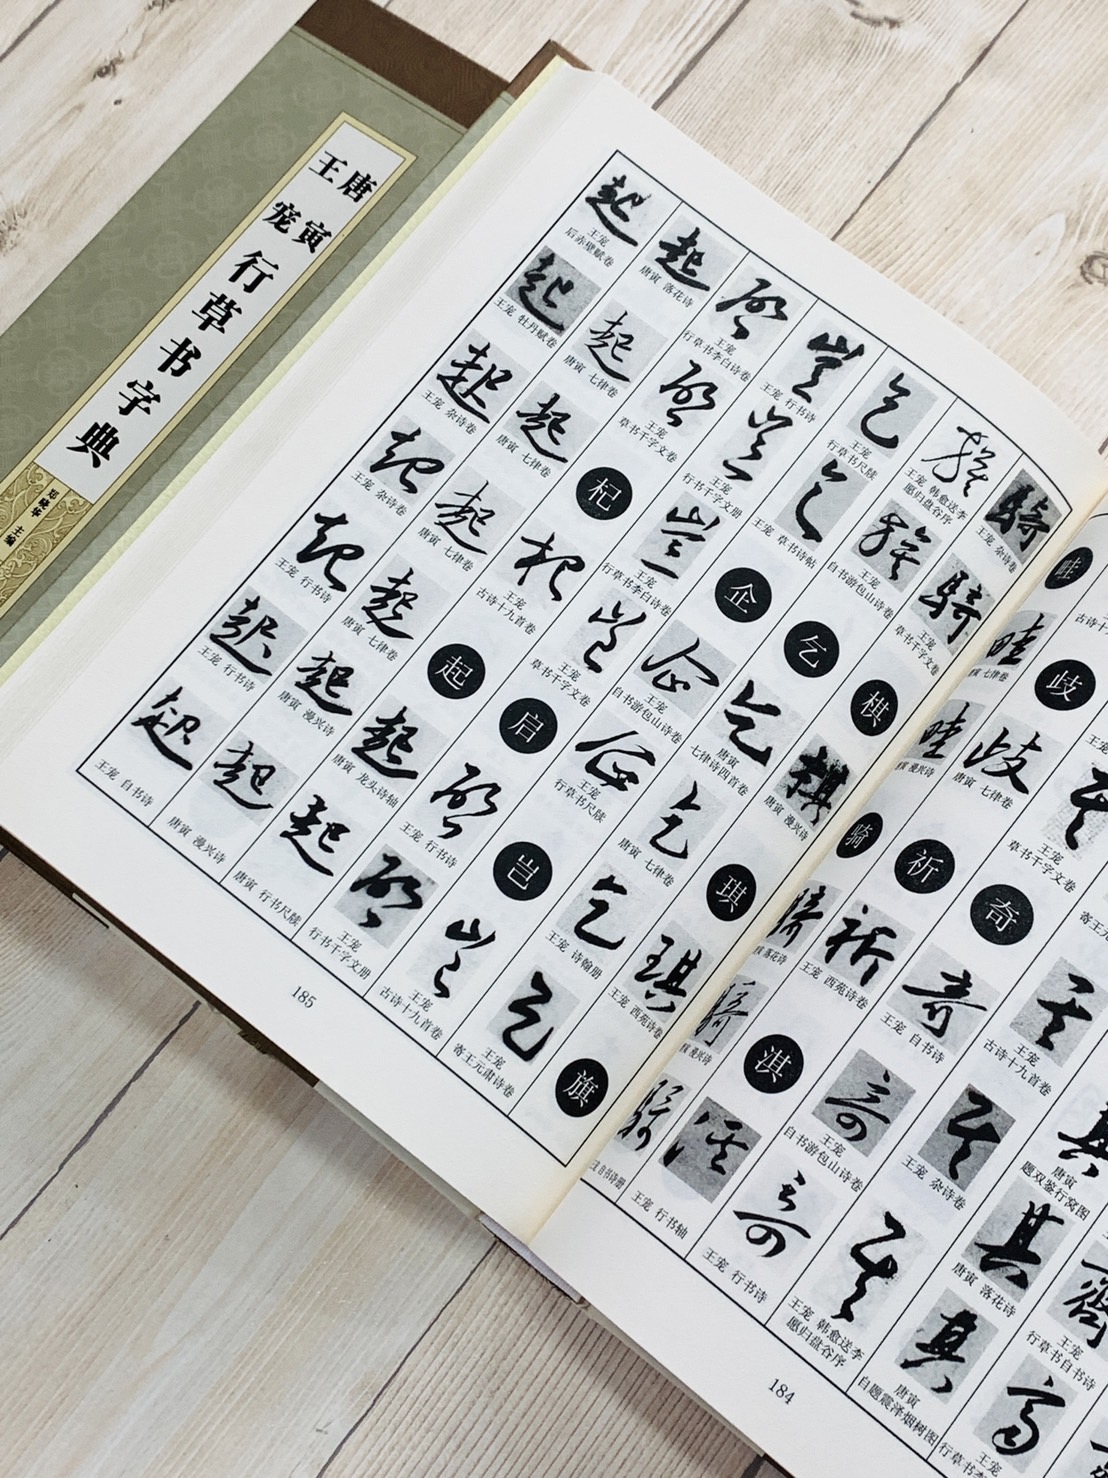 唐寅
王宠
行草书字典
郑晓华 主编
齐
王宠
行草书自书诗
齐
王宠
其
唐寅
题双鉴行窝图
其
唐寅 落花诗
其
唐寅
自题震泽烟树图
其
王宠
古诗十九首卷
其
王宠 杂诗卷
其
王宠 韩愈送李
愿归盘谷序
其
王宠
草书千字文卷
奇
奇
王宠 自书诗
奇
王宠
自书游包山诗卷
奇
王宠 行书诗
歧
歧
唐寅 七律卷
祈
祈
王宠 西苑诗卷
淇
淇
王宠 行书轴
畦
畦
七律卷
畦
漫兴诗
骑
骑
落花诗
骑
漫兴诗
骑
自书诗册
184
骑
王宠 杂诗卷
骑
王宠
草书千字文卷
棋
棋
唐寅 漫兴诗
琪
琪
王宠 西苑诗卷
旗
旗
王宠 韩愈送李
愿归盘谷序
旗
王宠
自书游包山诗卷
乞
乞
唐寅
七律诗四首卷
乞
唐寅 七律卷
乞
王宠 诗翰册
乞
王宠
寄王元肃诗卷
乞
王宠
行草书尺牍
乞
王宠 草书诗帖
企
企
王宠
自书游包山诗卷
企
王宠
行草书尺牍
岂
岂
王宠
古诗十九首卷
岂
王宠 行书诗
岂
王宠
行草千字文册
岂
王宠
行草书李白诗卷
岂
王宠
草书千字文卷
启
启
王宠 行书诗
启
王宠
行书千字文册
启
王宠
行草书李白诗卷
启
王宠
草书千字文卷
杞
杞
王宠
古诗十九首卷
起
起
唐寅 龙头诗轴
起
唐寅 行书尺牍
起
唐寅 落花诗
起
唐寅 七律卷
起
唐寅 七律卷
起
唐寅 七律卷
起
唐寅 七律卷
起
唐寅 漫兴诗
起
唐寅 漫兴诗
起
王宠
后赤壁赋卷
起
王宠 牡丹赋卷
起
王宠 杂诗卷
起
王宠 杂诗卷
起
王宠 行书诗
起
王宠 行书诗
起
王宠 自书诗
185